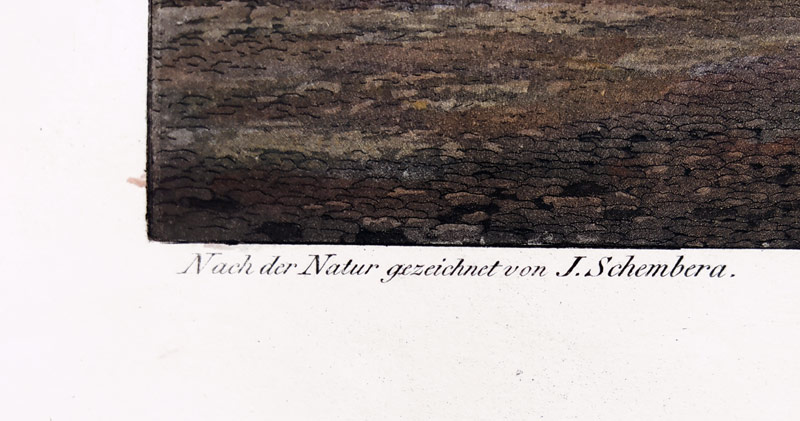 Nach der Natur gezeichnet von J. Schembera.